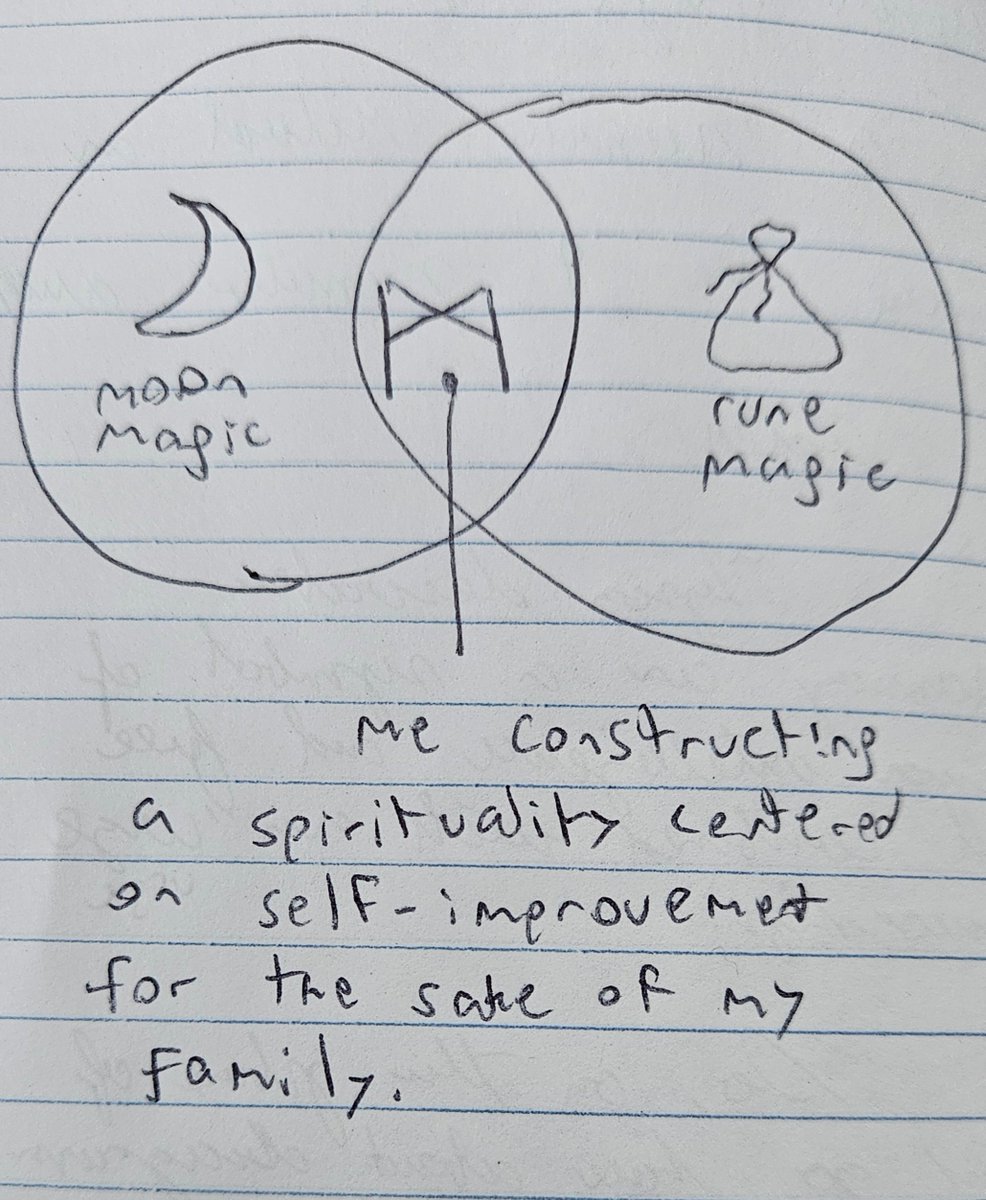 moon
magic
rune
magic
Me constructing
a spirituality centered
on self-improvemet
for the sake of my
family.